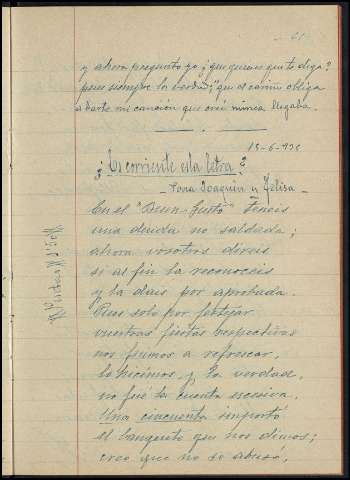 61
y ahora pregunto yo ¿que quieres que te diga?
pues siempre la verdad, que el cariño obliga
a darte mi canción que creí nunca llegaba.
15-6-938
¿Es corriente esta letra?
- Para Joaquin y Felisa -
En el "Buen Gusto" teneis
una deuda no saldada;
ahora vosotros direis
si al fin la reconoceis
y la dais por aprobada.
Pues solo por festejar
vuestras fiestas respectivas
nos fuimos a refrescar,
lo hicimos, y la verdad,
no fué la cuenta excesiva.
Una cincuenta importó
el banquete que nos dimos;
creo que no se abusó,